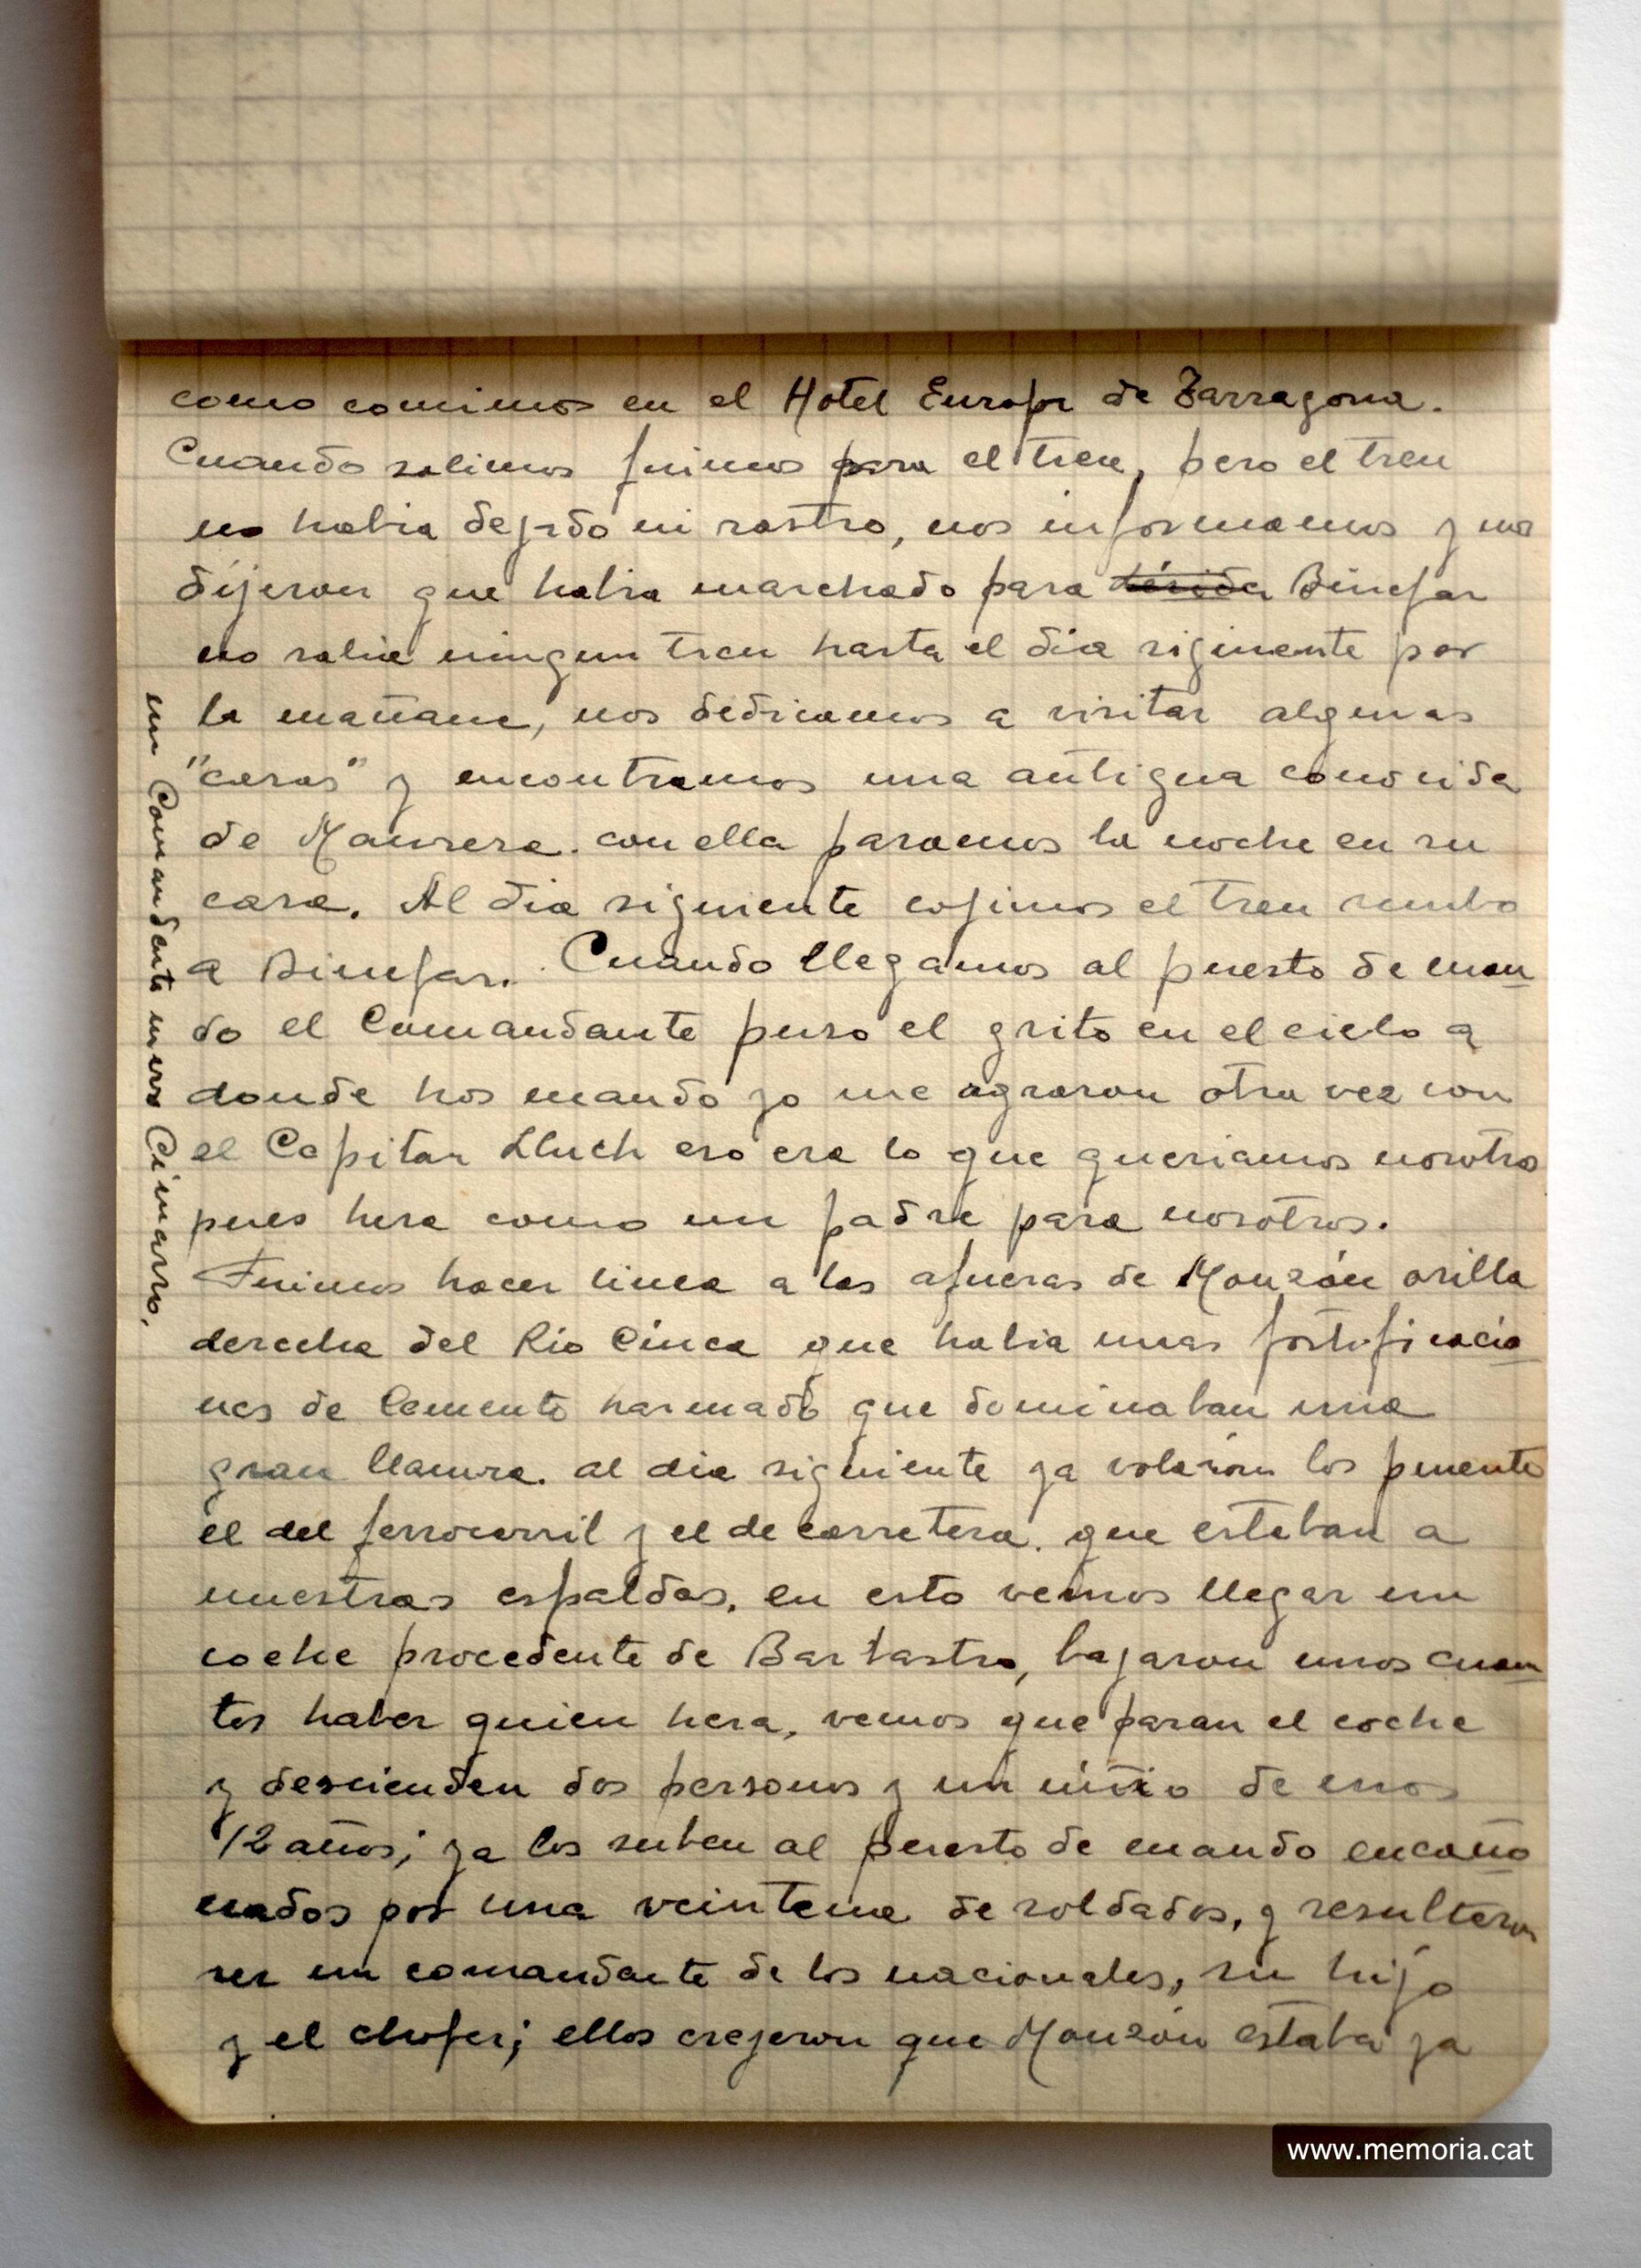 como comimos en el Hotel Europa de Tarragona.
Cuando salimos fuimos para el tren, pero el tren
no habia dejado ni rastro, nos informamos y nos
dijeron que habia marchado para Lérida Binefar
no salia ningun tren hasta el dia siguiente por
la mañana, nos dedicamos a visitar algunas
"casas" y encontramos una antigua conocida
de Manresa. con ella pasamos la noche en su
casa. Al dia siguiente cojimos el tren rumbo
a Binefar. Cuando llegamos al puesto de man
do el Comandante puso el grito en el cielo a
donde nos mando yo me agraron otra vez con
el Capitan Lluch eso era lo que queriamos nosotro
pues hera como un padre para nosotros.
Fuimos hacer linea a las afueras de Monzón orilla
derecha del Rio Cinca que habia unas fortificacio
nes de Cemento harmado que dominaban una
gran llanura. al dia siguiente ya volaron los puente
el del ferrocarril y el de carretera. que estaban a
nuestras espaldas, en esto vemos llegar un
coche procedente de Barbastro, bajaron unos cuan
tos haber quien hera, vemos que paran el coche
y descienden dos personas y un niño de unos
12 años; ya los suben al puesto de mando encaño
nados por una veintena de soldados, y resultaron
ser un comandante de los nacionales, su hijo
y el chofer; ellos creyeron que Monzón estaba ya
un Comandante nuevo Cimarro.
www.memoria.cat